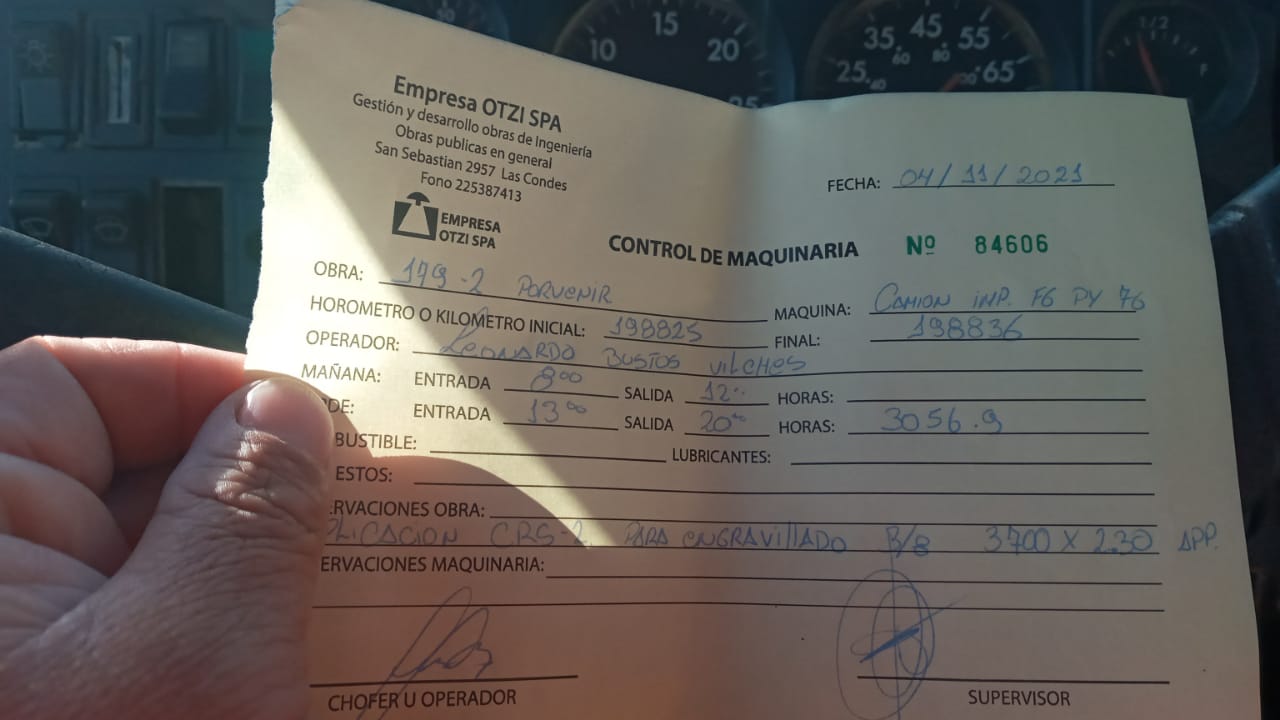 15
10
20
25
45
35
55
60
80
25
40
65
1/2
F
Empresa OTZI SPA
Gestión y desarrollo obras de Ingeniería
Obras publicas en general
San Sebastian 2957 Las Condes
Fono 225387413
EMPRESA
OTZI SPA
FECHA: 04/11/2021
CONTROL DE MAQUINARIA Nº 84606
OBRA: 179-2 PORVENIR
MAQUINA: CAMION IMP. FG PY 76
HOROMETRO O KILOMETRO INICIAL: 198825 FINAL: 198836
OPERADOR: LEONARDO BUSTOS VILCHES
MAÑANA: ENTRADA 8:00 SALIDA 12:00 HORAS:
RDE: ENTRADA 13:00 SALIDA 20:00 HORAS: 3056.9
BUSTIBLE: LUBRICANTES:
ESTOS:
ERVACIONES OBRA:
PLICACION CRS-2 PARA ENGRAVILLADO B/B 3700 X 2.30 APP.
ERVACIONES MAQUINARIA:
CHOFER U OPERADOR
SUPERVISOR